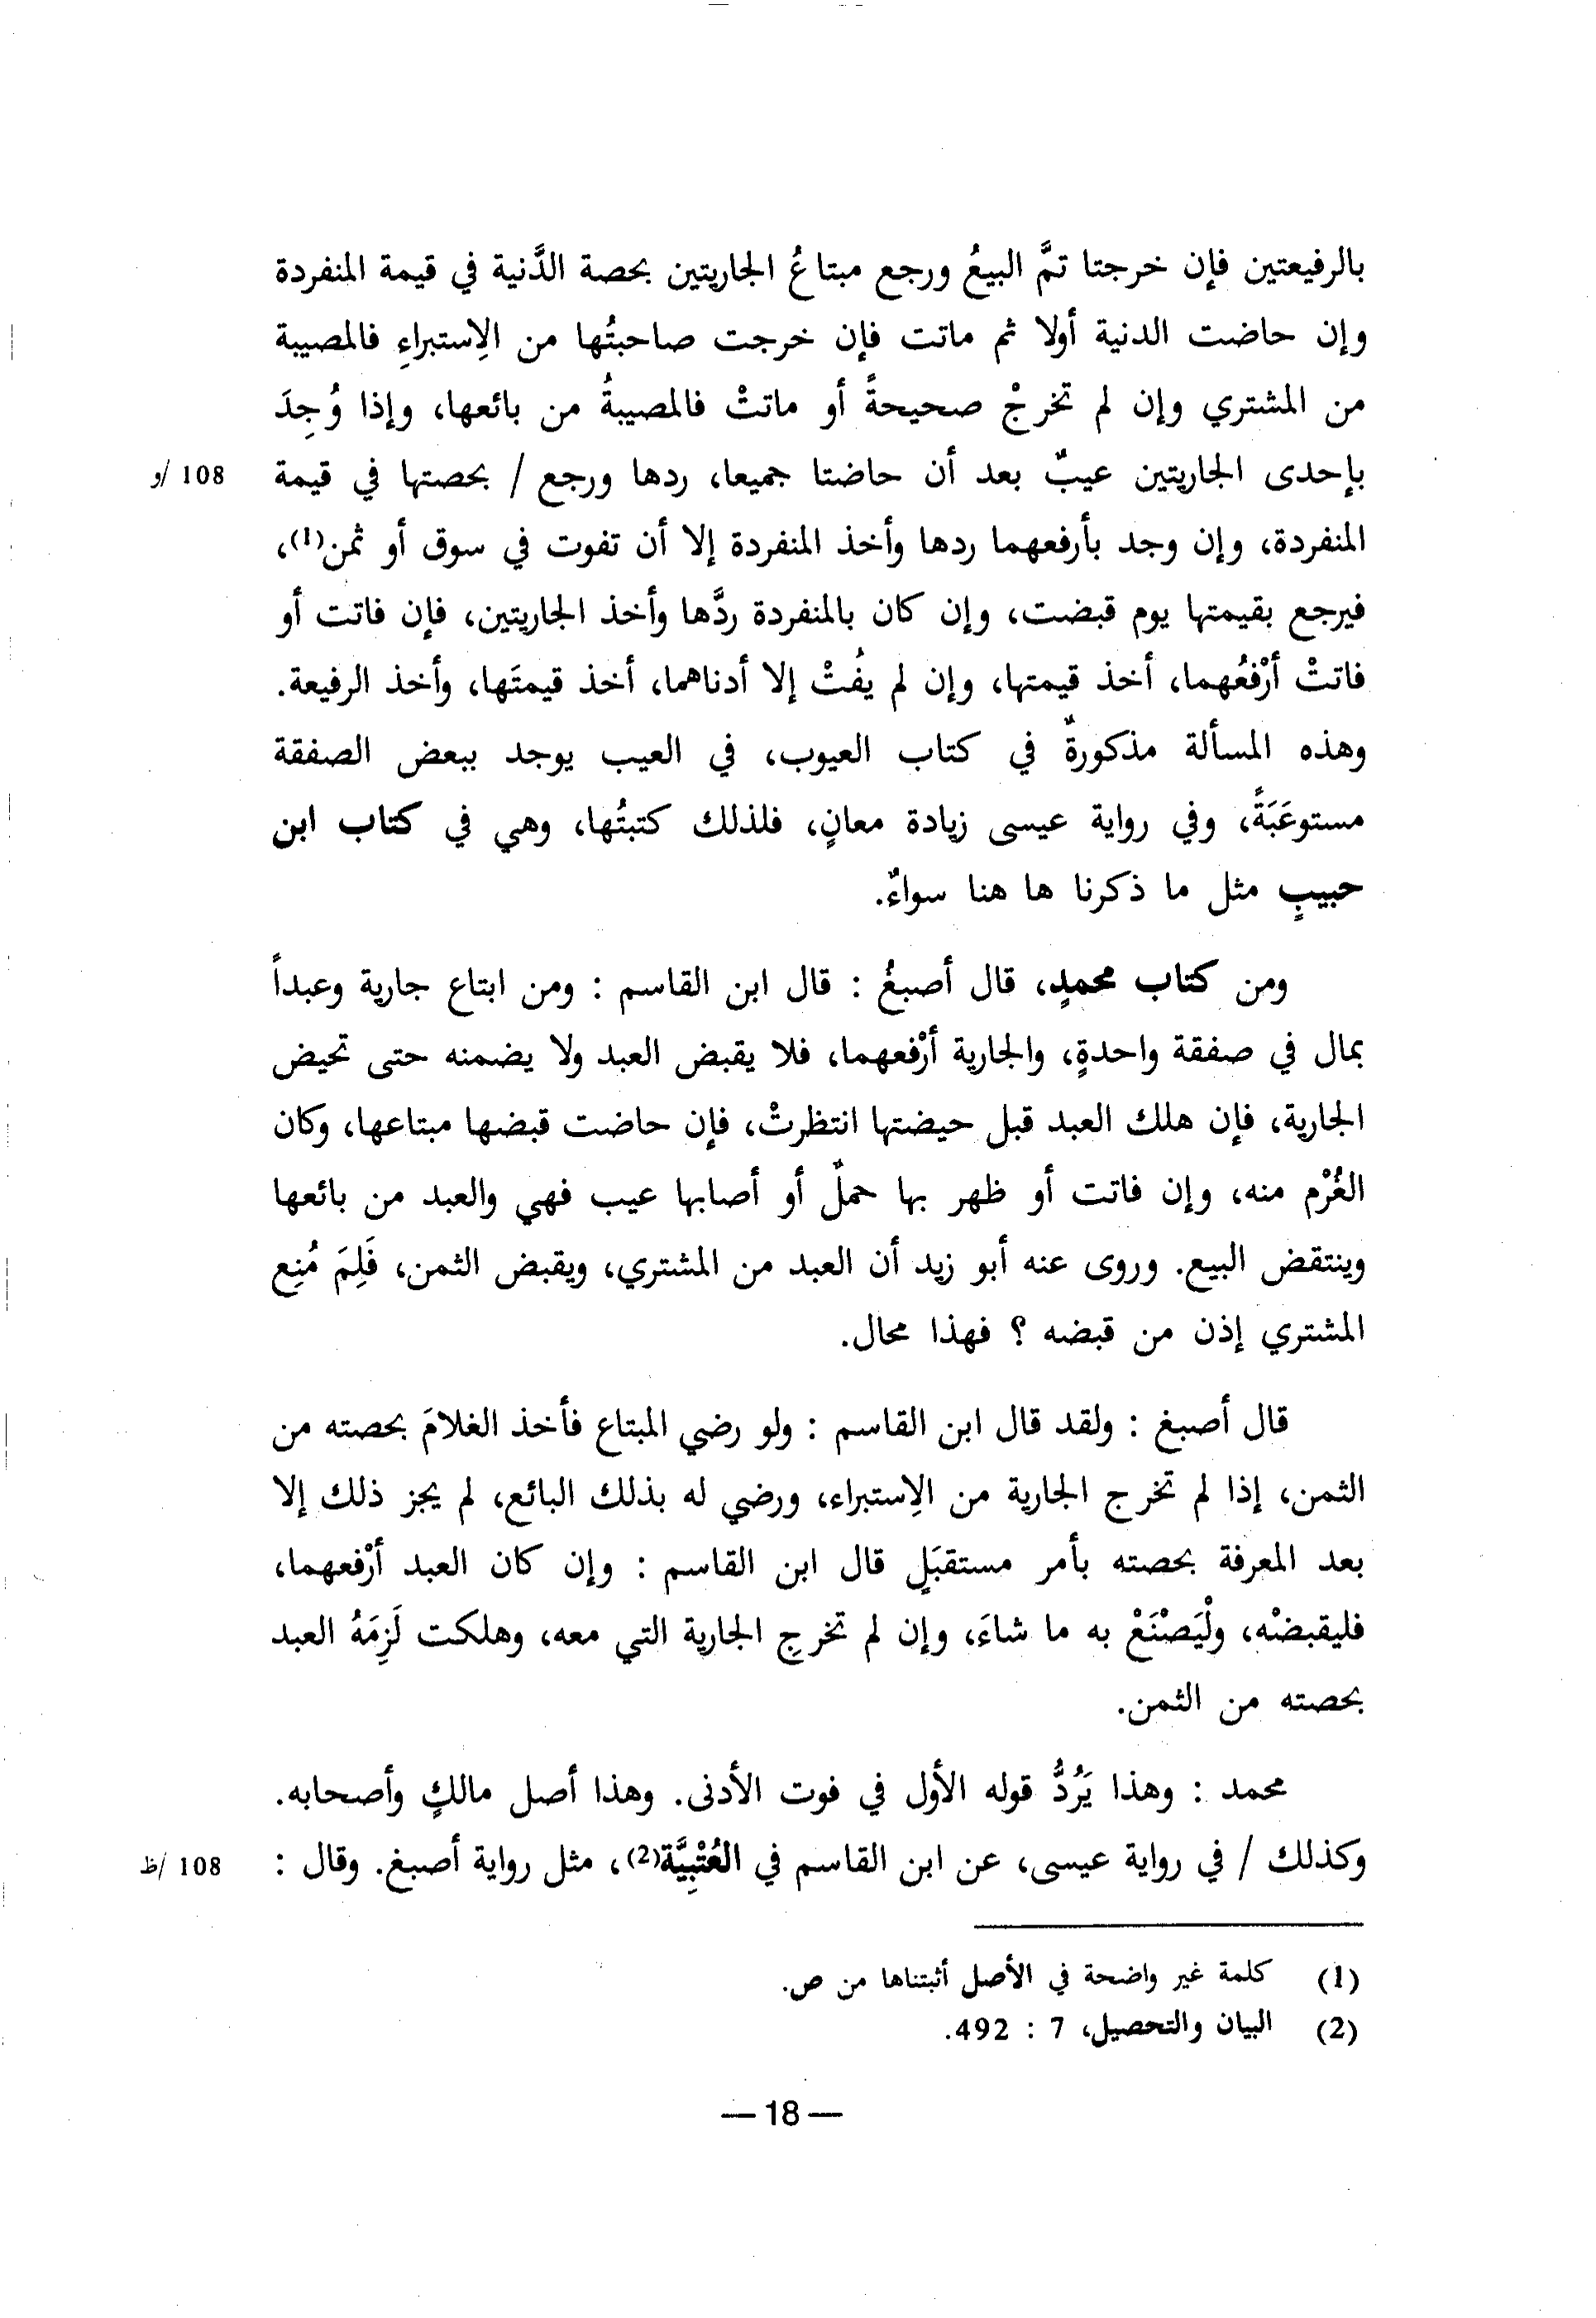 بالرفيعتين فإن خرجتا تمَّ البيعُ ورجع مبتاعُ الجاريتين بحصة الدَّنية في قيمة المنفردة
وإن حاضت الدنية أولا ثم ماتت فإن خرجت صاحبتُها من الإستبراءِ فالمصيبة
من المشتري وإن لم تخرجْ صحيحةً أو ماتتْ فالمصيبةُ من بائعها، وإذا وُجِدَ
بإحدى الجاريتين عيبٌ بعد أن حاضتا جميعا، ردها ورجع / بحصتها في قيمة 108 /و
المنفردة، وإن وجد بأرفعهما ردها وأخذ المنفردة إلا أن تفوت في سوق أو ثمن(1)،
فيرجع بقيمتها يوم قبضت، وإن كان بالمنفردة ردَّها وأخذ الجاريتين، فإن فاتت أو
فاتتْ أرْفعُهما، أخذ قيمتها، وإن لم يفُتْ إلا أدناهما، أخذ قيمتَها، وأخذ الرفيعة.
وهذه المسألة مذكورةٌ في كتاب العيوب، في العيب يوجد ببعض الصفقة
مستوعَبَةً، وفي رواية عيسى زيادة معانٍ، فلذلك كتبتُها، وهي في كتاب ابن
حبيبٍ مثل ما ذكرنا ها هنا سواءٌ.
ومن كتاب محمدٍ، قال أصبغُ : قال ابن القاسم : ومن ابتاع جارية وعبداً
بمال في صفقة واحدةٍ، والجارية أرْفعهما، فلا يقبض العبد ولا يضمنه حتى تحيض
الجارية، فإن هلك العبد قبل حيضتها انتظرتْ، فإن حاضت قبضها مبتاعها، وكان
الغُرْم منه، وإن فاتت أو ظهر بها حملٌ أو أصابها عيب فهي والعبد من بائعها
وينتقض البيع. وروى عنه أبو زيد أن العبد من المشتري، ويقبض الثمن، فَلِمَ مُنِع
المشتري إذن من قبضه ؟ فهذا محال.
قال أصبغ : ولقد قال ابن القاسم : ولو رضي المبتاع فأخذ الغلامَ بحصته من
الثمن، إذا لم تخرج الجارية من الإستبراء، ورضي له بذلك البائع، لم يجز ذلك إلا
بعد المعرفة بحصته بأمر مستقبَلٍ قال ابن القاسم : وإن كان العبد أرْفعهما،
فليقبضْه، ولْيَصْنَعْ به ما شاءَ، وإن لم تخرجِ الجارية التي معه، وهلكت لَزِمَهُ العبد
بحصته من الثمن.
محمد : وهذا يَرُدُّ قوله الأول في فوت الأدنى. وهذا أصل مالكٍ وأصحابه.
وكذلك / في رواية عيسى، عن ابن القاسم في العُتْبِيَّة(2)، مثل رواية أصبغ. وقال : 108 /ظ
(1) كلمة غير واضحة في الأصل أثبتناها من ص.
(2) البيان والتحصيل، 7 : 492.
— 18 —